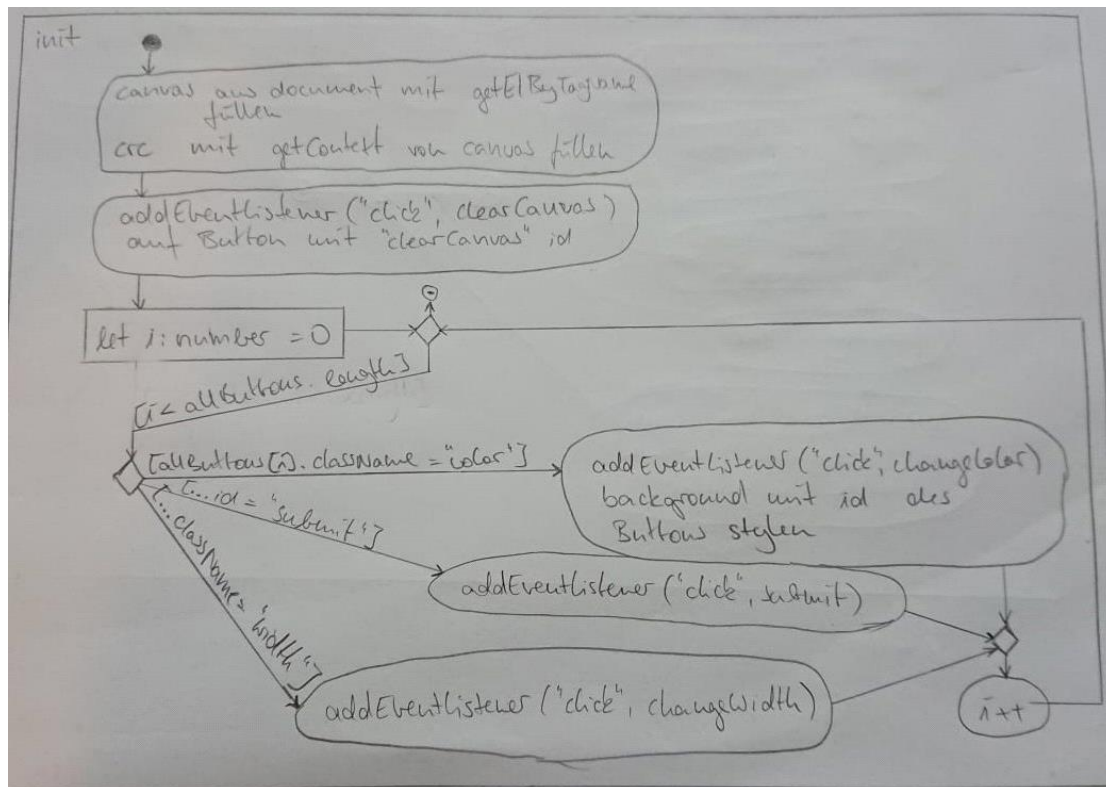 init
canvas aus document mit getElByTagname
füllen
crc mit getContext von canvas füllen
addEventListener ("click", clearCanvas)
auf Button mit "clearCanvas" id
let i: number = 0
[i < allButtons. length]
[allButtons[i]. className = "color"]
[...id = "submit"]
[...className = "width"]
addEventListener ("click", changeColor)
background mit id des
Buttons stylen
addEventListener ("click", submit)
addEventListener ("click", changeWidth)
i++